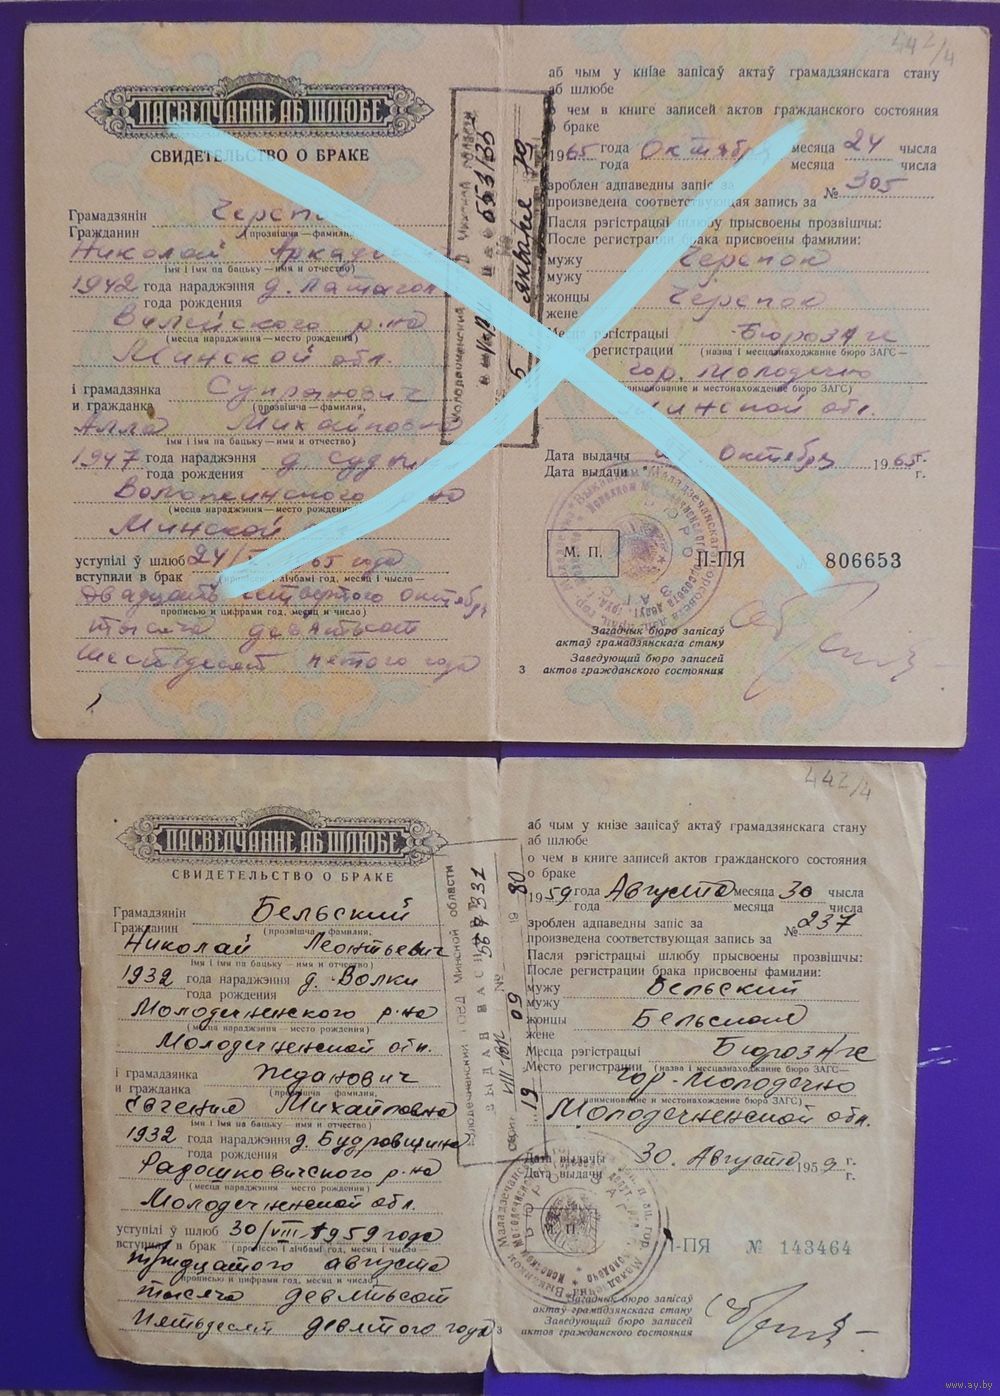 442/4
ПАСВЕДЧАННЕ АБ ШЛЮБЕ
СВИДЕТЕЛЬСТВО О БРАКЕ
Грамадзянін
Гражданин
(прозвішча—фамилия,
Николай
імя і імя па бацьку—имя и отчество)
1942 года нараджэння
года рождения
Вилейского р-на
(месца нараджэння—место рождения)
Минской обл.
і грамадзянка Супранович
и гражданка
(прозвішча—фамилия,
Алла Михайловна
імя і імя па бацьку—имя и отчество)
1947 года нараджэння д.
года рождения
(месца нараджэння—место рождения)
Минской
уступілі ў шлюб 24/ 65 года
вступили в брак (пропіссю і лічбамі год, месяц і чысло—
двадцать четвертого октября
прописью и цифрами год, месяц и число)
тысяча девятьсот
шестьдесят пятого года
аб чым у кнізе запісаў актаў грамадзянскага стану
аб шлюбе
о чем в книге записей актов гражданского состояния
о браке
1965 года Октября месяца 24 чысла
года месяца числа
зроблен адпаведны запіс за
произведена соответствующая запись за № 305
Пасля рэгістрацыі шлюбу прысвоены прозвішчы:
После регистрации брака присвоены фамилии:
мужу Черепок
мужу
жонцы Черепок
жене
Месца рэгістрацыі Бюро ЗАГС
регистрации (назва і месцазнаходжанне бюро ЗАГС—
гор. Молодечно
наименование и местонахождение бюро ЗАГС)
Минской обл.
Дата выдачы Октября 1965 г.
Дата выдачи г.
М. П.
II-ПЯ № 806653
Загадчык бюро запісаў
актаў грамадзянскага стану
Заведующий бюро записей
3 актов гражданского состояния
442/4
ПАСВЕДЧАННЕ АБ ШЛЮБЕ
СВИДЕТЕЛЬСТВО О БРАКЕ
Грамадзянін Бельский
Гражданин
(прозвішча—фамилия,
Николай Леонтьевич
імя і імя па бацьку—имя и отчество)
1932 года нараджэння д. Волки
года рождения
Молодечненского р-на
(месца нараджэння—место рождения)
Молодечненской обл.
і грамадзянка Жданович
и гражданка
(прозвішча—фамилия,
Евгения Михайловна
імя і імя па бацьку—имя и отчество)
1932 года нараджэння д. Будровщина
года рождения
Радошковичского р-на
(месца нараджэння—место рождения)
Молодечненской обл.
уступілі ў шлюб 30/VIII 1959 года
вступили в брак (пропіссю і лічбамі год, месяц і чысло—
тридцатого августа
прописью и цифрами год, месяц и число)
тысяча девятьсот
пятьдесят девятого года
аб чым у кнізе запісаў актаў грамадзянскага стану
аб шлюбе
о чем в книге записей актов гражданского состояния
о браке
1959 года Августа месяца 30 чысла
года месяца числа
зроблен адпаведны запіс за
произведена соответствующая запись за № 237
Пасля рэгістрацыі шлюбу прысвоены прозвішчы:
После регистрации брака присвоены фамилии:
мужу Бельский
мужу
жонцы Бельская
жене
Месца рэгістрацыі Бюро ЗАГС
Место регистрации (назва і месцазнаходжанне бюро ЗАГС—
гор. Молодечно
наименование и местонахождение бюро ЗАГС)
Молодечненской обл.
Дата выдачы 30. Августа 1959 г.
Дата выдачи г.
I-ПЯ № 143464
Загадчык бюро запісаў
актаў грамадзянскага стану
Заведующий бюро записей
3 актов гражданского состояния
www.ay.by